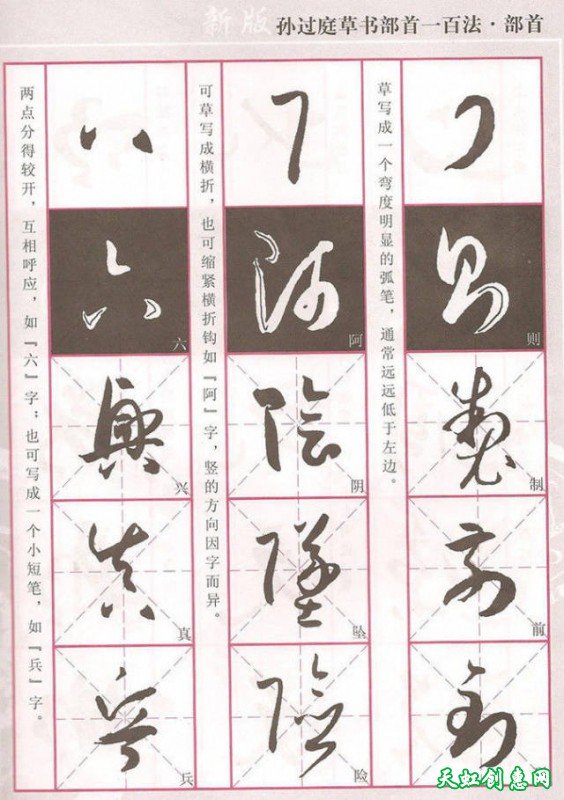 新版 孙过庭草书部首一百法·部首
草写成一个弯度明显的弧笔，通常远远低于左边。
则
制
前
可草写成横折，也可缩紧横折钩如『阿』字，竖的方向因字而异。
阿
阴
坠
险
两点分得较开，互相呼应，如『六』字；也可写成一个小短笔，如『兵』字。
六
兴
真
兵
天虹创惠网